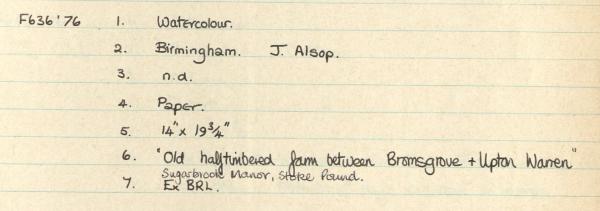 F636'76 1. Watercolour.
2. Birmingham. J. Alsop.
3. n.d.
4. Paper.
5. 14" x 19 3/4"
6. "Old halftimbered farm between Bromsgrove + Upton Warren"
Sugarbrook Manor, Stoke Pound.
7. Ex BRL.